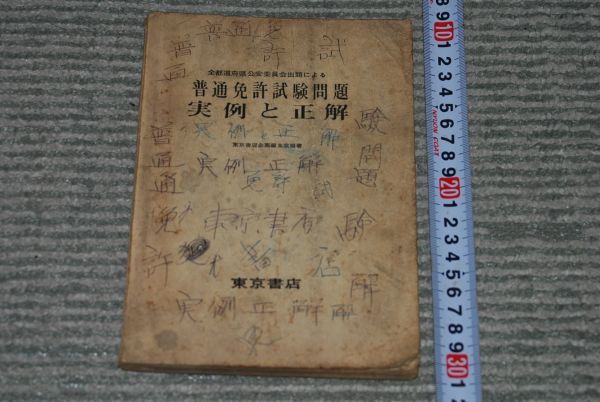 普通免許試
全都道府県公安委員会出題による
普通免許試験問題
実例と正解
実例と正解
東京書店企画編集部編著
実例正解
免許試
普通
普通通免許
験問題
験
東京書店
解
東京書店
実例正解解
免
8 9 10 1 2 3 4 5 6 7 8 9 20 1 2 3 4 5 6 7 8 9 30 1